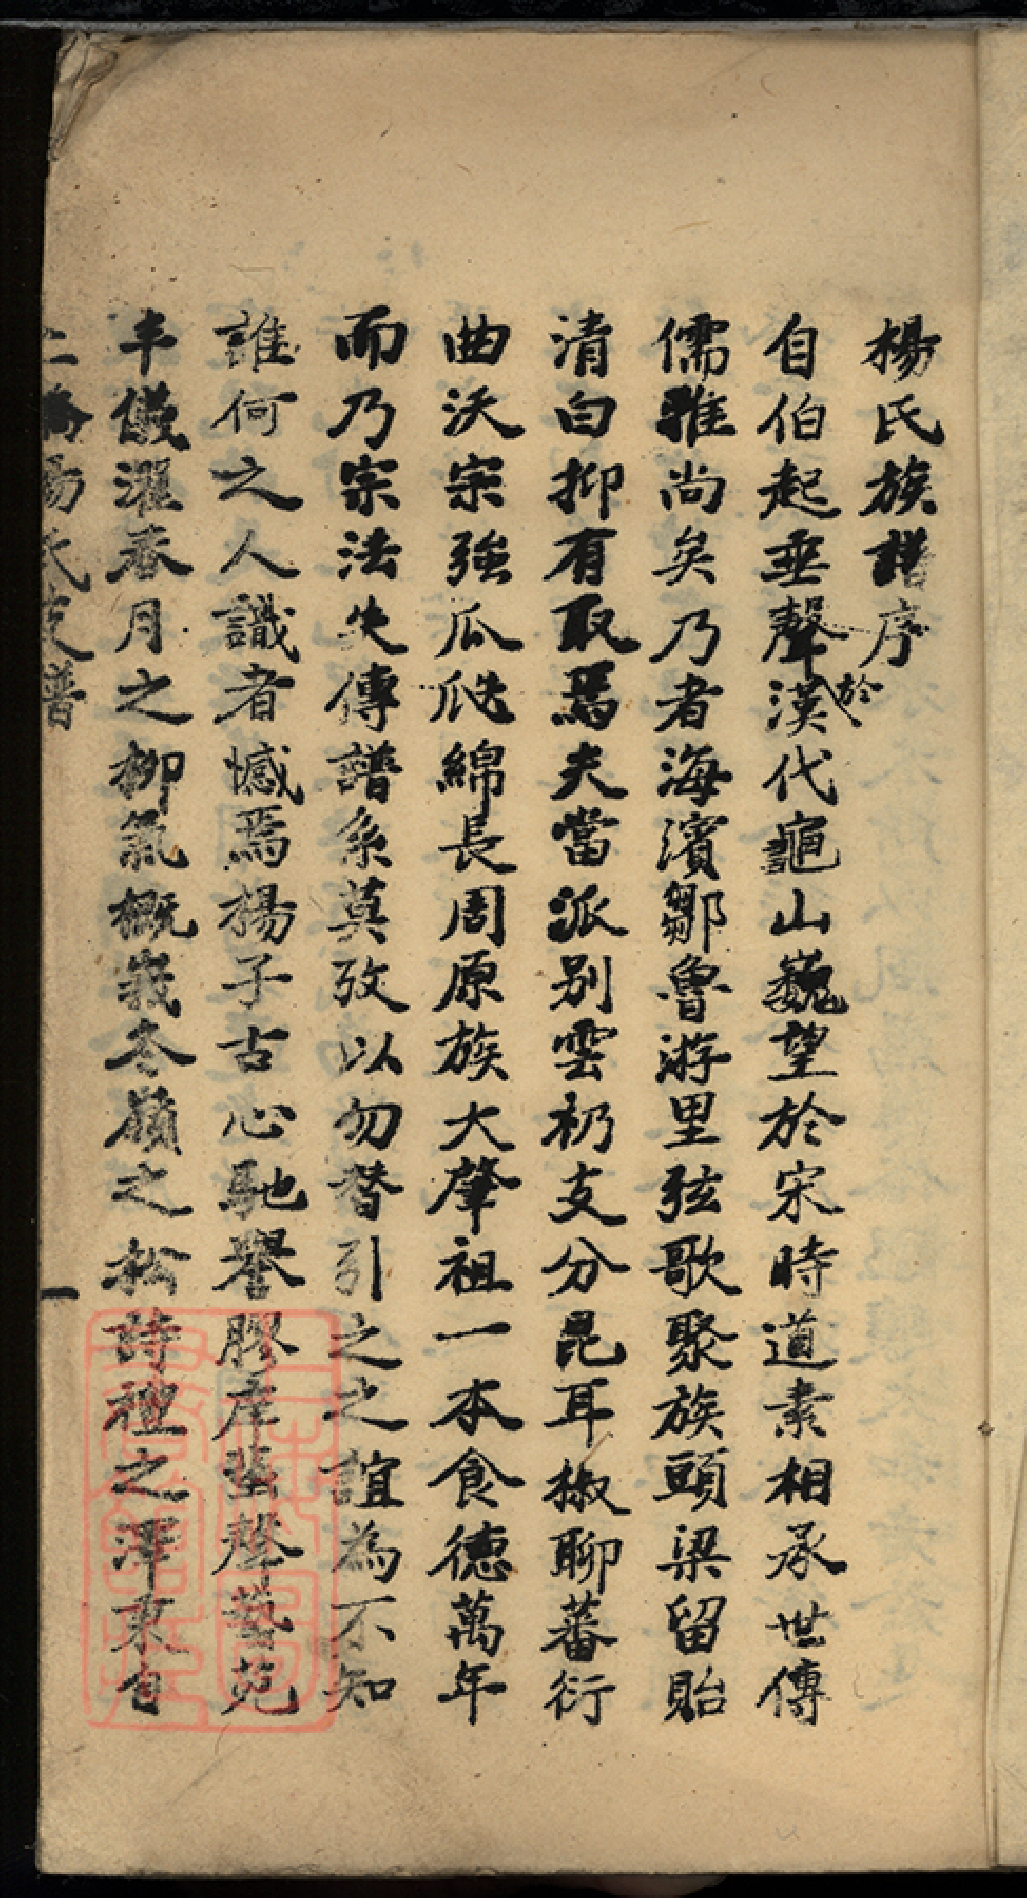 楊氏族譜序
自伯起垂聲於漢代龜山巍望於宋時道素相承世傳
儒雅尚矣乃者海濱鄒魯游里弦歌聚族頭梁留貽
清白抑有取焉夫當派別雲礽支分昆耳椒聊蕃衍
曲沃宗強瓜瓞綿長周原族大肇祖一本食德萬年
而乃宗法失傳譜系莫攷以勿替引之之誼為不知
誰何之人識者憾焉楊子古心馳譽膠庠蜚聲藝苑
丰儀濯春月之柳氣概峩冬嶺之松詩禮之澤東自
楊氏支譜
一